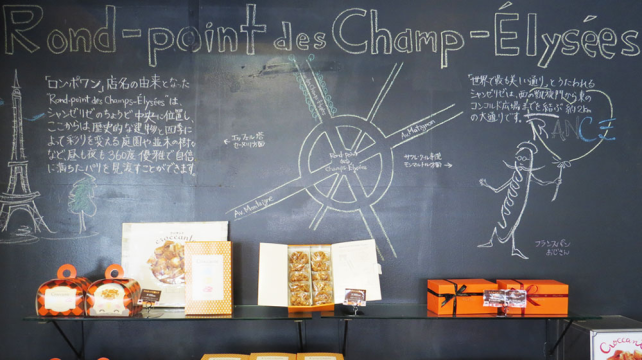 Rond-point des Champ-Élysées
「ロン・ポワン」店名の由来となった
"Rond-point des Champs-Élysée"は、
シャンゼリゼのちょうど中央に位置し、
ここからは、歴史的な建物と四季に
よって彩りを変える庭園や並木の樹木
など、昼も夜も360度優雅で自信
に満ちたパリを見渡すことができます。
エッフェル塔
Rond-point
des
Champs-Élysées
Av. Matignon
Av. Montaigne
モンマルトル方面
「世界で最も美しい通り」とうたわれる
シャンゼリゼは、西の凱旋門から東の
コンコルド広場までを結ぶ約2km
の大通りです。
FRANCE
フランスパン
おじさん
Croccant